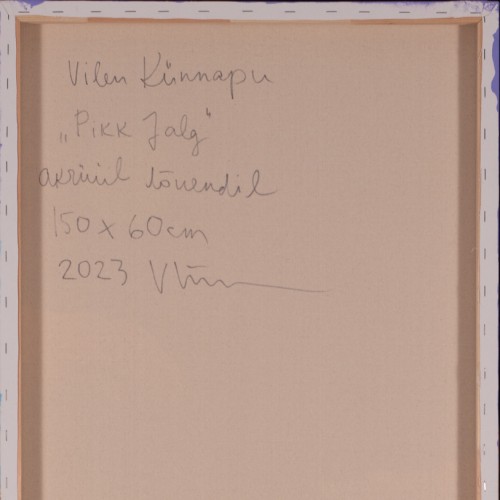 Vilen Künnapu
„Pikk Jalg"
akrüül lõuendil
150 x 60 cm
2023